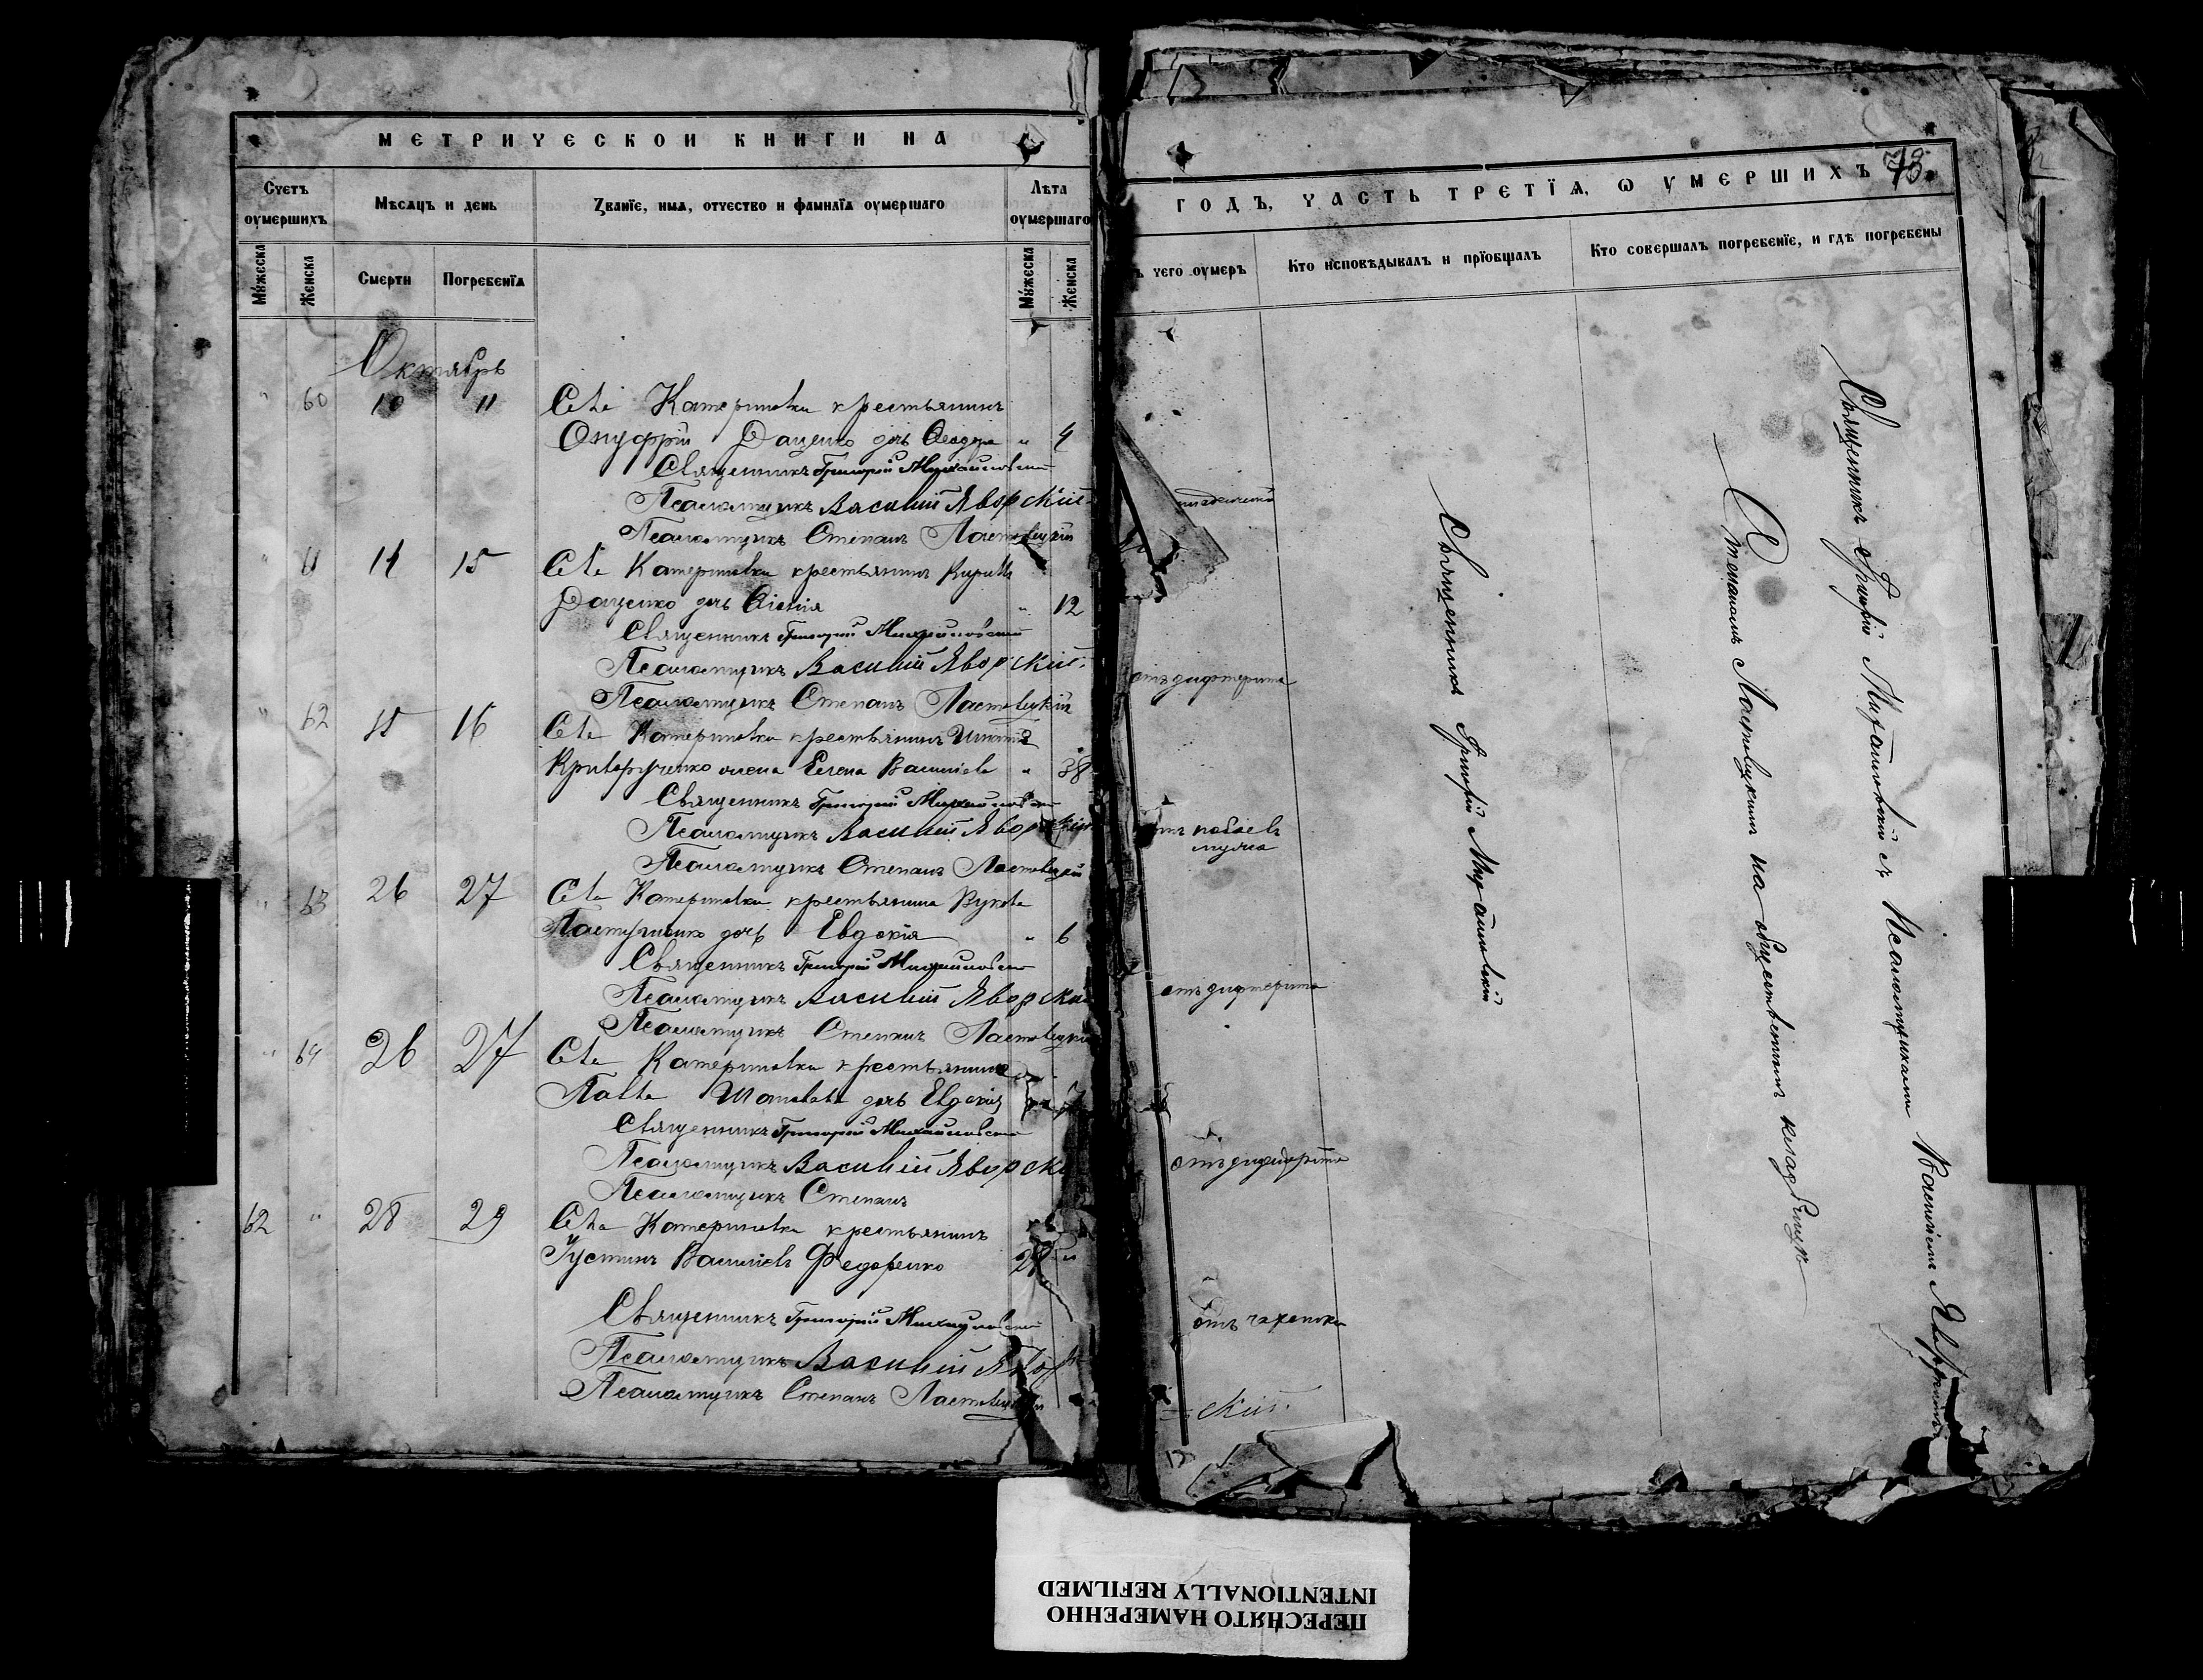 МЕТРИЧЕСКОЙ КНИГИ НА
Счетъ оумершихъ
Мѣсяцъ и день
Званїе, имя, отчество и фамилїя оумершаго
Лѣта оумершаго
Мужеска
Женска
Смерти
Погребенїя
Мужеска
Женска
Октябрь
" 60 10 11 Села Катериновки крестьянина
Онуфрія Даценко дочь Ѳеодора " 4
Священникъ Григорій Михайловскій
Псаломщикъ Василій Яворскій
Псаломщикъ Степанъ Ластовецкій
" 61 14 15 Села Катериновки крестьянина Кирилла
Даценко дочь " 12
Священникъ Григорій Михайловскій
Псаломщикъ Василій Яворскій
Псаломщикъ Степанъ Ластовецкій
" 62 15 16 Села Катериновки крестьянина Игнатія
Криворученко жена Елена Васильева " 38
Священникъ Григорій Михайловскій
Псаломщикъ Василій Яворскій
Псаломщикъ Степанъ Ластовецкій
" 63 26 27 Села Катериновки крестьянина
дочь Евдокія " 6
Священникъ Григорій Михайловскій
Псаломщикъ Василій Яворскій
Псаломщикъ Степанъ Ластовецкій
" 64 26 27 Села Катериновки крестьянина
Павла дочь Евдокія
Священникъ Григорій Михайловскій
Псаломщикъ Василій Яворскій
Псаломщикъ Степанъ
62 " 28 29 Села Катериновки крестьянинъ
Іустинъ Васильевъ Федоренко
Священникъ Григорій Михайловскій
Псаломщикъ Василій Явор
Псаломщикъ Степанъ Ластовецкій
73.
ГОДЪ, ЧАСТЬ ТРЕТЇЯ, Ѡ УМЕРШИХЪ
ъ чего оумеръ
Кто исповѣдывалъ и прїобщалъ
Кто совершалъ погребенїе, и гдѣ погребены
отъ дифтерита
отъ дифтерита
отъ дифтерита
отъ чахотки
скій.
Священникъ Григорій Михайловскій
Священникъ Григорій Михайловскій съ Псаломщиками Василіемъ Яворскимъ
Степаномъ Ластовецкимъ на общественномъ кладбищѣ
ПЕРЕСНЯТО НАМЕРЕННО
INTENTIONALLY REFILMED